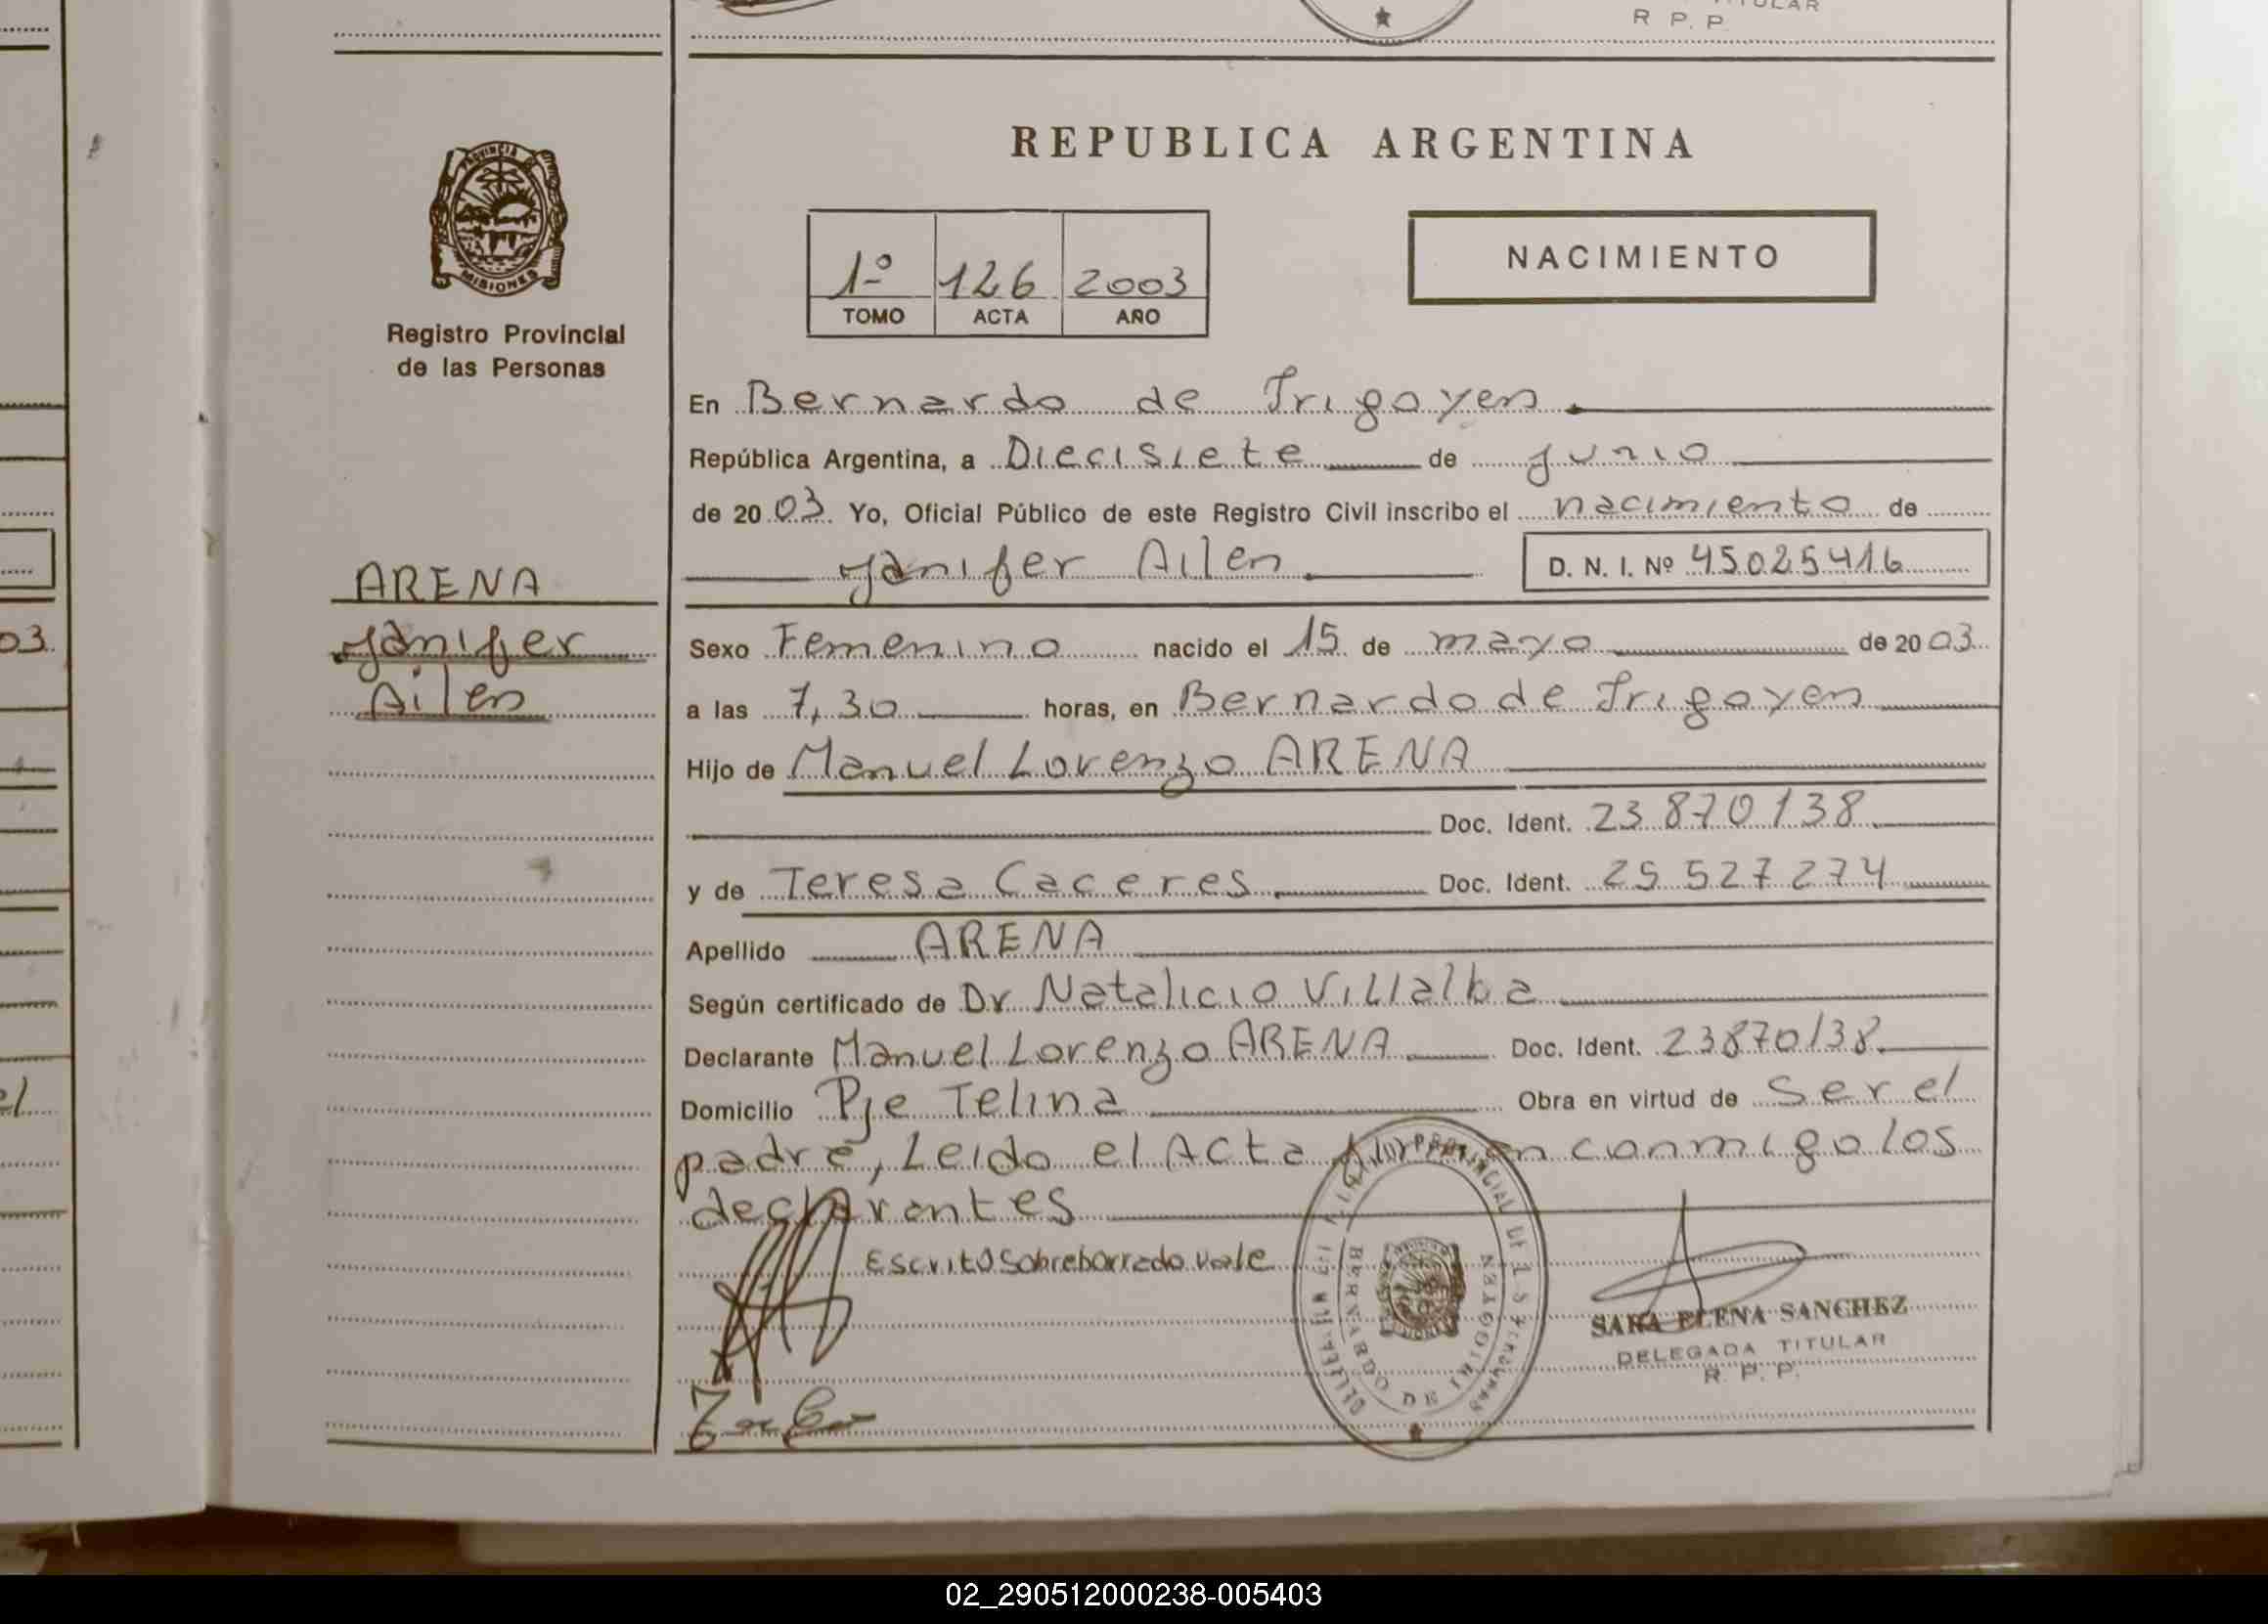 TITULAR
R P. P
REPUBLICA ARGENTINA
PROVINCIA DE
MISIONES
Registro Provincial
de las Personas
1º 126 2003
TOMO ACTA AÑO
NACIMIENTO
En Bernardo de Irigoyen
República Argentina, a Diecisiete de junio
de 2003 Yo, Oficial Público de este Registro Civil inscribo el nacimiento de
Janifer Ailen D. N. I. Nº 45025416
ARENA
Janifer
Ailen
Sexo Femenino nacido el 15 de mayo de 2003
a las 7,30 horas, en Bernardo de Irigoyen
Hijo de Manuel Lorenzo ARENA
Doc. Ident. 23 870 138
y de Teresa Caceres Doc. Ident. 25 527 274
Apellido ARENA
Según certificado de Dr Natalicio Villalba
Declarante Manuel Lorenzo ARENA Doc. Ident. 23870138
Domicilio Pje Telina Obra en virtud de Ser el
padre, Leido el Acta firman conmigo los
declarantes
Escrito Sobreborrado vale
PROVINCIAL DE LAS PERSONAS
BERNARDO DE IRIGOYEN
SARA ELENA SANCHEZ
DELEGADA TITULAR
R. P. P.
03
el
02_290512000238-005403